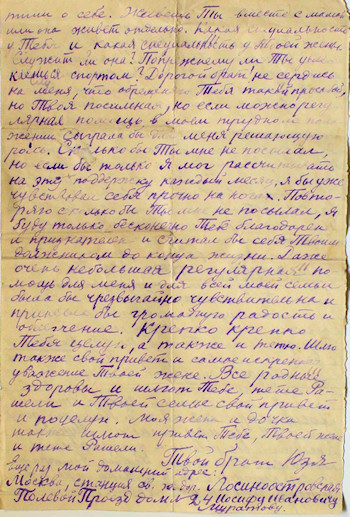 пиши о себе. Живешь Ты вместе с мамой
или она живет отдельно. Какая специальность
у Тебя и какая специальность у Твоей жены
Служит ли она? По прежнему ли Ты увле
каешься спортом? Дорогой брат, не сердись
на меня, что обращаюсь к Тебе с такой просьбой,
но Твоя посильная, но если можно регу
лярная помощь в моем трудном поло
жении сыграла бы для меня решающую
роль. Сколько бы Ты мне не посылал,
но если бы только я мог рассчитывать
на эту поддержку каждый месяц, я бы уже
чувствовал себя прочно на ногах. Повто-
ряю сколько бы Ты мне не посылал, я
буду только бесконечно Тебе благодарен
и признателен и считал бы себя Твоим
должником до конца жизни. Даже
очень небольшая регулярная!!! по
мощь для меня и для всей моей семьи
была бы чрезвычайно чувствительна и
принесла бы громадную радость и
облегчение. Крепко крепко
Тебя целую, а также и тетю. Шлю
также свой привет и самое искреннее
уважение Твоей жене. Все родные
здоровы и шлют Тебе, тете Ра
шели и Твоей семье свой привет
и поцелуи. Моя жена и дочка
также шлют привет Тебе, Твоей жене
и тете Рашели.
Твой брат Юзя
мой домашний адрес:
Москва, станция Лосиноостровская
Полевой Проезд дом 24 Иосифу Ивановичу
Муратову.